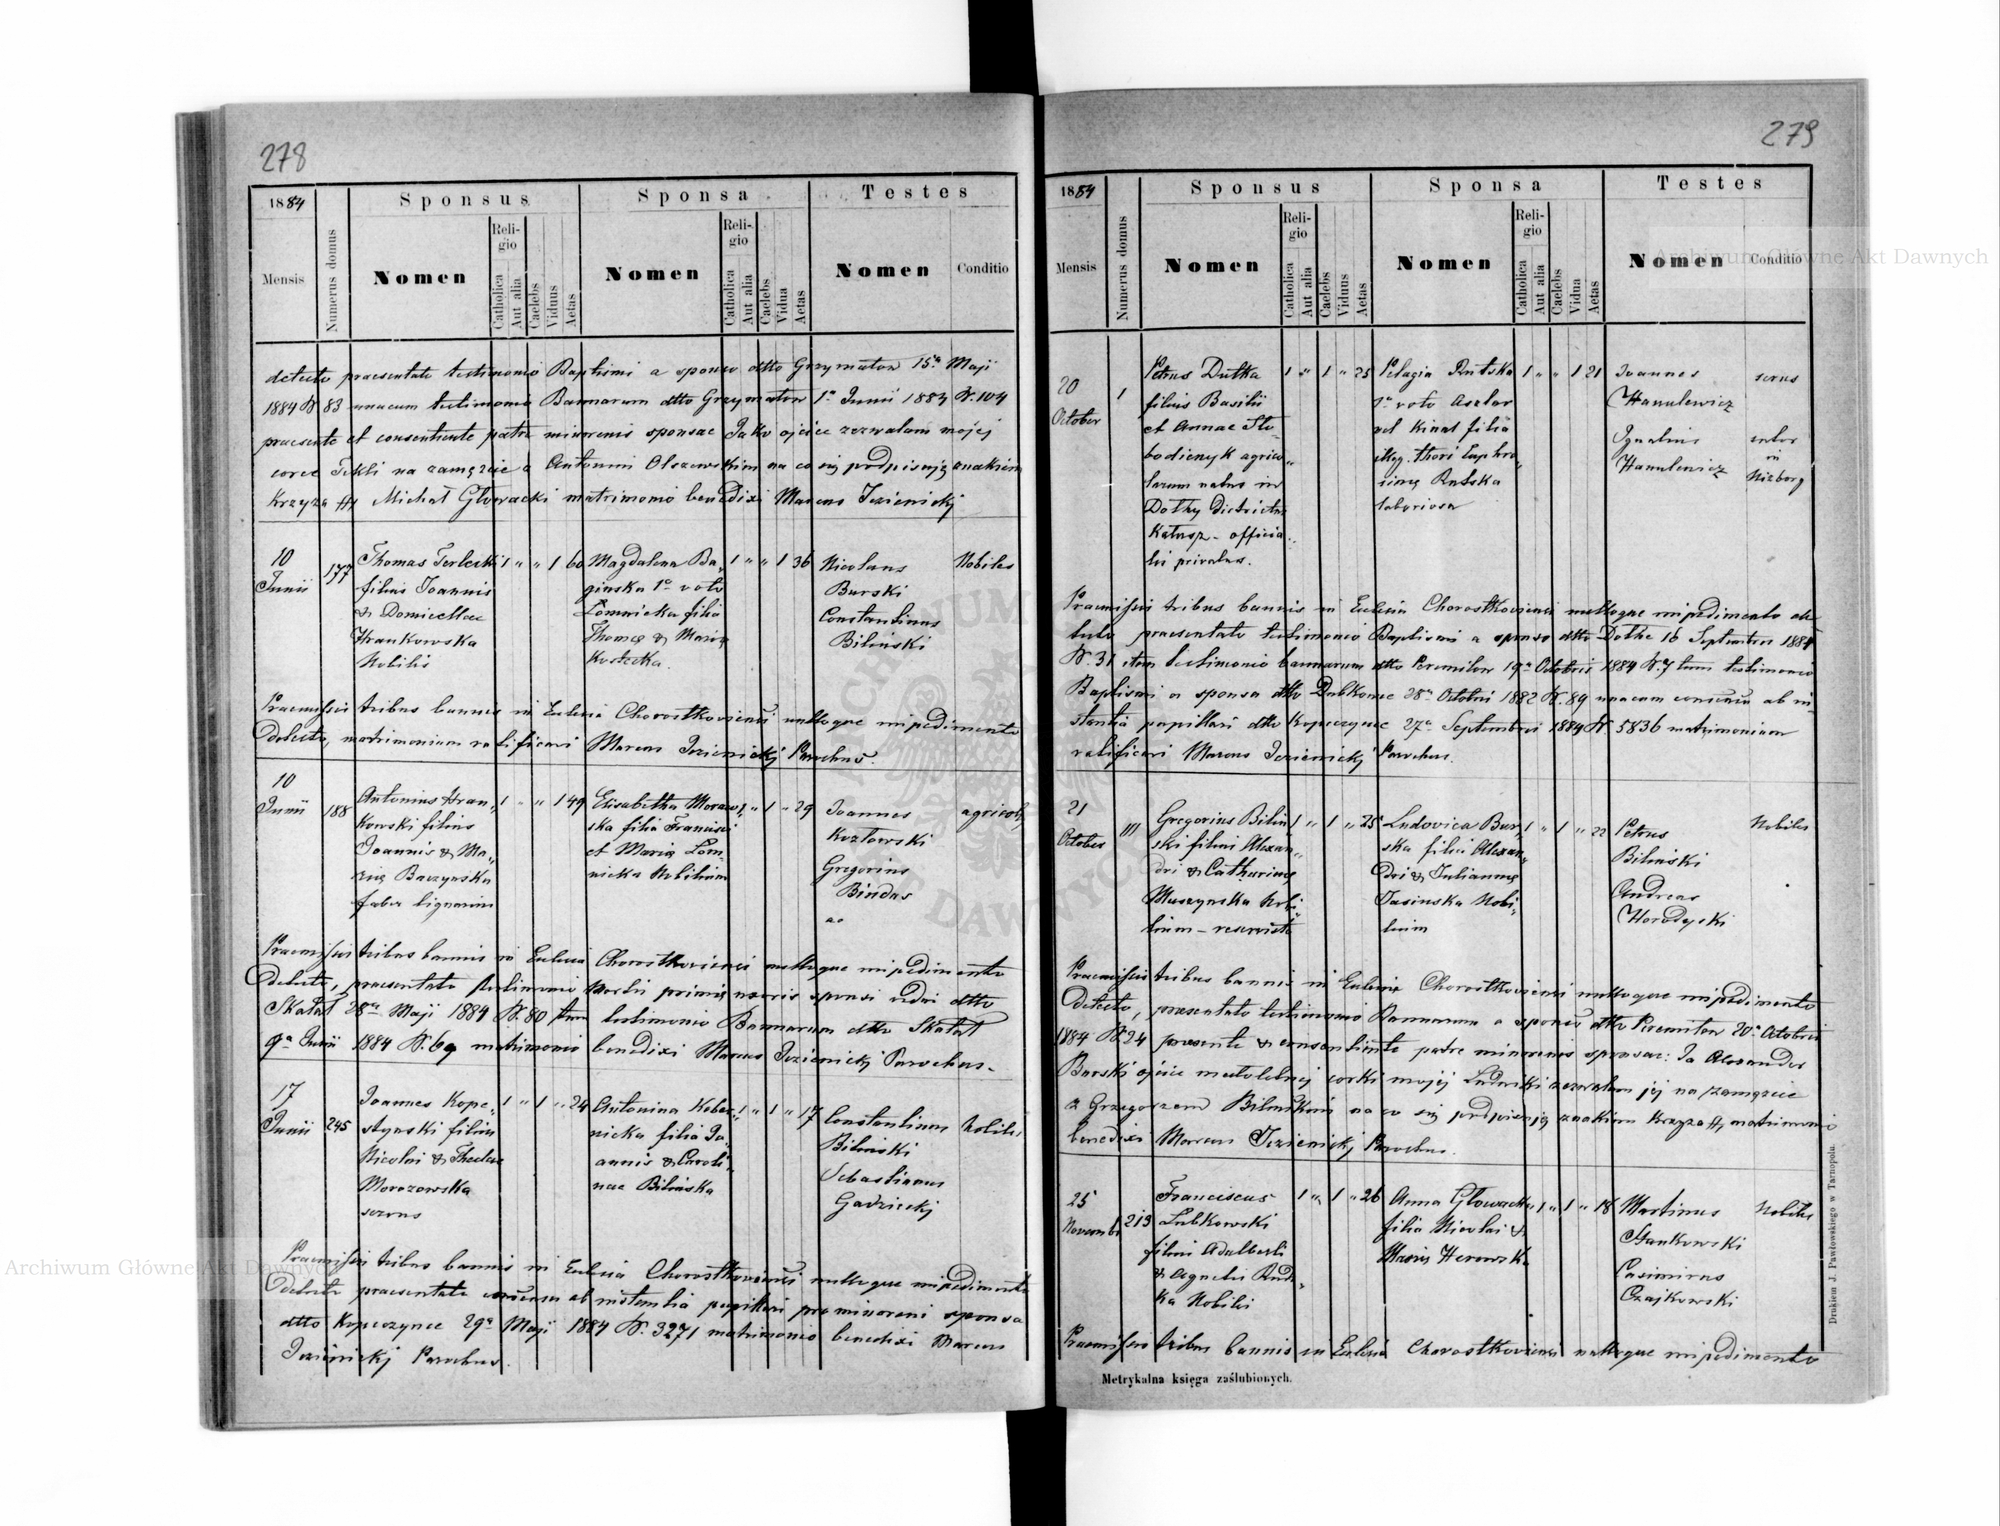 278
1884
Mensis
Numerus domus
Sponsus
Nomen
Religio
Catholica
Aut alia
Caelebs
Viduus
Aetas
Sponsa
Nomen
Religio
Catholica
Aut alia
Caelebs
Vidua
Aetas
Testes
Nomen
Conditio
detecto praesentato testimonio Baptismi a sponso ddto Grzymałow 15a Maji
1884 N. 83 unacum testimonio Bannorum ddto Grzymałow 1a Junii 1884 N. 104
praesente et consentiente patre minorenis sponsae Jako ojciec zezwalam mojej
corce Tekli na zamęzcie z Antonim Olszewskim na co się podpisuję znakiem
krzyża ++ Michał Głowacki matrimonio benedixi Marcus Jezienickj
10
Junii
177
Thomas Terlecki
filius Joannis
& Domicellae
Hrankowska
Nobilis
1 " " 1 60
Magdalena Ba-
ginska 1o voto
Łomnicka filia
Thomę & Marię
Kostecka.
1 " " 1 36
Nicolaus
Burski
Constantinus
Biliński
Nobiles
Praemissis tribus bannis in Eclesia Chorostkoviensi nulloque impedimento
detecto, matrimonium ratificavi Marcus Jezienickj Parochus.
10
Junii
188
Antonius Hran-
kowski filius
Joannis & Ma-
rię Baczynska
faber lignarius
1 " " 1 49
Elisabetha Moraw-
ska filia Francisci
et Marię Łom-
nicka Nobilium
1 " 1 " 29
Joannes
Kozłowski
Gregorius
Bindas
agricolę
Praemissis tribus bannis in Eclesia Chorostkoviensi nulloque impedimento
detecto, praesentato testimonio mortis primię uxoris sponsi vidui ddto
Skałat 28a Maji 1884 N. 80 tum testimonio Bannorum ddto Skałat
9a Junii 1884 N. 69 matrimonio benedixi Marcus Jezienickj Parochus.
17
Junii
245
Joannes Kope-
stynski filius
Nicolai & Theclae
Morozowska
servus
1 " 1 " 24
Antonina Kober-
nicka filia Jo-
annis & Caroli-
nae Bilińska
1 " 1 " 17
Constantinus
Biliński
Sebastianus
Gadzickj
Nobiles
Praemissis tribus bannis in Eclesia Chorostkoviensi nulloque impedimento
detecto praesentato consensu ab instantia pupillari pro minoreni sponsa
ddto Kopeczynce 29a Maji 1884 N. 3271 matrimonio benedixi Marcus
Jezienickj Parochus.
279
1884
Mensis
Numerus domus
Sponsus
Nomen
Religio
Catholica
Aut alia
Caelebs
Viduus
Aetas
Sponsa
Nomen
Religio
Catholica
Aut alia
Caelebs
Vidua
Aetas
Testes
Nomen
Conditio
20
October
1
Petrus Dutka
filius Basilii
et Annae Slo-
bodienyk agrico-
larum natus in
Dołhy districtu
Kałusz - officia-
lis privatus.
1 " 1 " 25
Pelagia Rutska
1o voto
vel Kinal filia
illeg. thori Euphro-
sinę Rutska
laboriosa
1 " " 1 21
Joannes
Hanulewicz
Ignatius
Hanulewicz
servus
sutor
in
Nizborg
Praemissis tribus bannis in Eclesia Chorostkoviensi nulloque impedimento de-
tecto praesentato testimonio Baptismi a sponso ddto Dołhe 16 Septembris 1884
N. 31 item testimonio bannorum ddto Peremilow 19a Octobris 1884 N. 7 tum testimonio
Baptismi a sponsa ddto Dubkowce 28a Octobris 1882 N. 89 unacum consensu ab in-
stantia pupillari ddto Kopeczynce 27a Septembris 1884 N. 5836 matrimonium
ratificavi Marcus Jezienickj Parochus.
21
October
111
Gregorius Biliń-
ski filius Alexan-
dri & Catharinę
Muszynska Nobi-
lium - reservista
1 " 1 " 25
Ludovica Bur-
ska filia Alexan-
dri & Juliannę
Jasinska Nobi-
lium
1 " 1 " 22
Petrus
Biliński
Andreas
Horodyski
Nobiles
Praemissis tribus bannis in Eclesia Chorostkoviensi nulloque impedimento
detecto, praesentato testimonio Bannorum a sponso ddto Peremilow 20a Octobris
1884 N. 24 praesente & consentiente patre minorenis sponsae: Ja Alexander
Burski ojciec małoletnej corki mojej Ludwiki zezwalam jej na zamęzcie
z Grzegorzem Bilińskim na co się podpisuję znakiem krzyża ++ matrimonio
benedixi Marcus Jezienickj Parochus.
25
Novembr
219
Franciscus
Lubkowski
filius Adalberti
& Agnetis Rud-
ka Nobiles
1 " 1 " 26
Anna Głowacka
filia Nicolai &
Marię Herowsk.
1 " 1 " 18
Martinus
Stankowski
Casimirus
Czajkowski
Nobiles
Praemissis tribus bannis in Eclesia Chorostkoviensi nulloque impedimento
Metrykalna księga zaślubionych.
Drukiem J. Pawłowskiego w Tarnopolu.
Archiwum Główne Akt Dawnych
Archiwum Główne Akt Dawnych